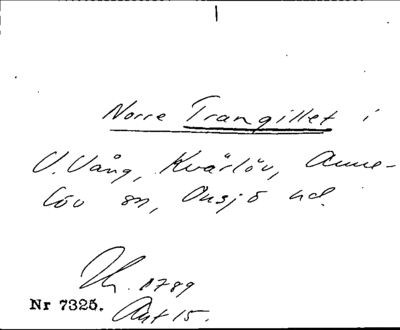 Norre Trangillet i
V. Vång, Kvärlöv, Anne-
löv sn, Onsjö hd.
1789
Nr 7325. Akt 15.